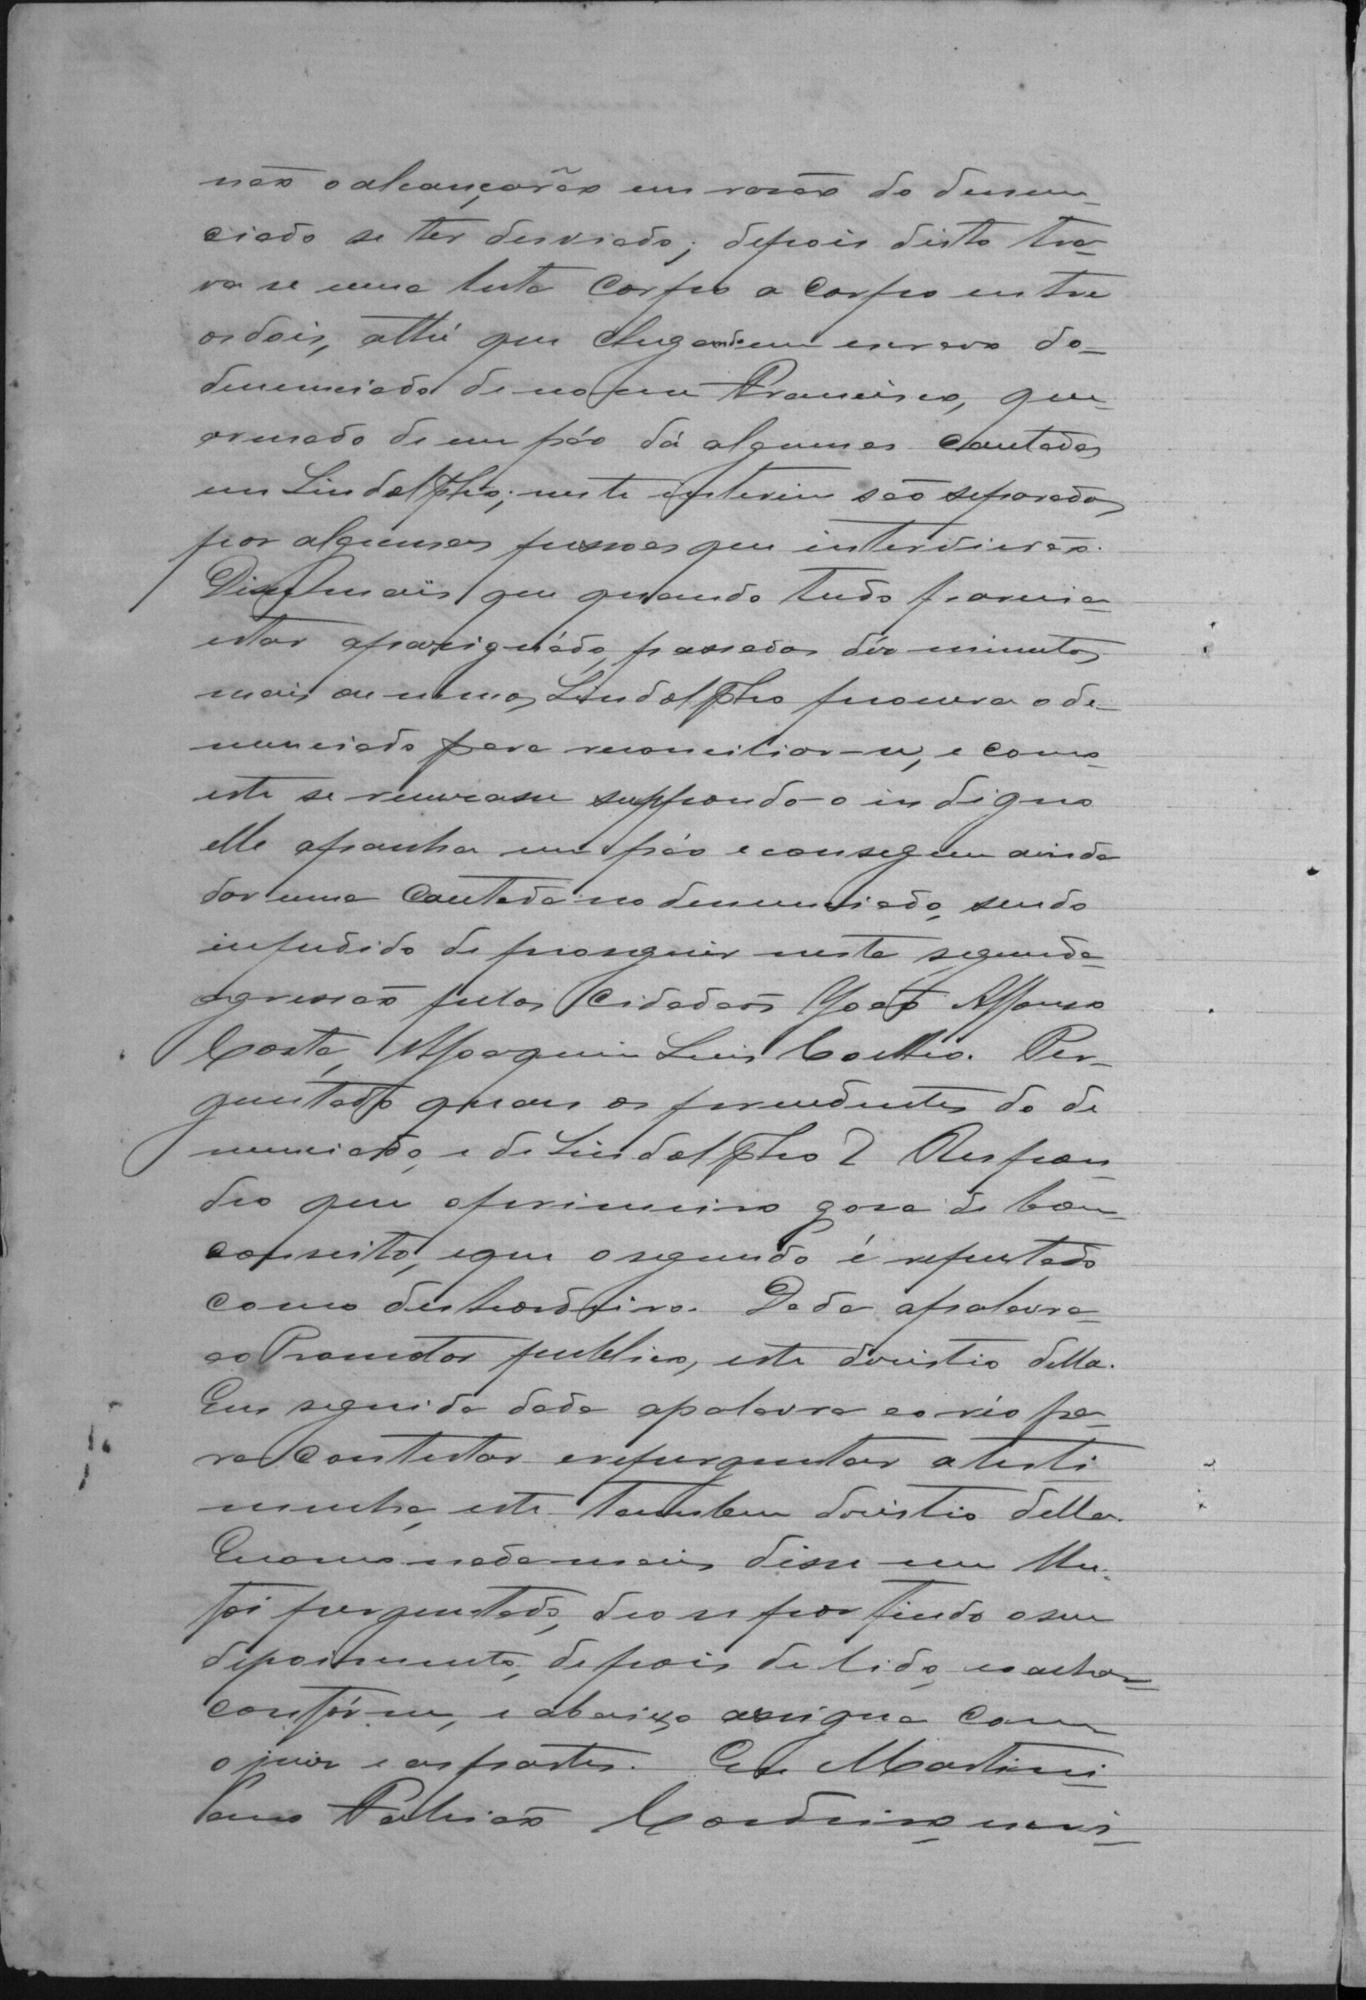 não o alcançarão em rasão do denun-
ciado se ter desviado; depois disto tra-
va se uma luta corpo a corpo entre
os dois, athé que chegando um escravo do-
denunciado de nome Francisco, que
armado de um páo dá algumas cautadas
em Lindolpho; neste interim são separados
por algumas pessoas que intervierão.
Disse mais que quando tudo parecia
estar apasiguádo, passados déz minutos
mais ou menos, Lindolpho procura o de-
nunciado para reconciliar-se, e como
este se recusasse suppondo-o indigno
elle apanha um páo e consegue ainda
dar uma cautada no denunciado, sendo
impedido de proseguir nesta segunda
agressão pelos Cidadãos João Affonso
Costa, Joaquim Luis Coelho. Per-
guntado quaes os precedentes do de
nunciado, e de Lindolpho? Respon
deo que o primeiro gosa de bom
conceito, e que o segundo é reputado
como desordeiro. Dada a palavra
ao Promotor publico, este desistio della.
Em seguida dada a palavra ao réo pa-
ra contestar e reperguntar a teste
munha, este tambem desistio della.
E como nada mais disse nem lhe
foi perguntado, deo se por findo o seu
depoimento, depois de lido, e o achar
confórme, e abaixo assigna com
o juiz e as partes. Eu Martini
ano Paixão Cordeiro, escri-